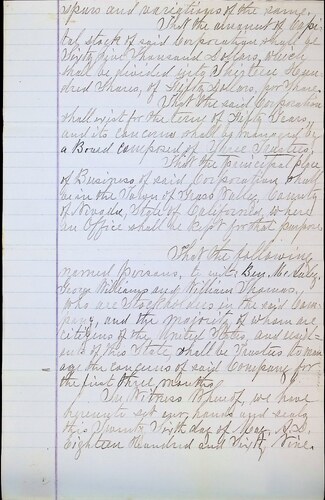 spurs and variations of the same.
That the amount of Capi-
tal stock of said Corporation shall be
Sixty five Thousand Dollars, which
shall be divided into Thirteen Hun-
dred Shares, of Fifty Dollars, per Share.
That the said Corporation
shall exist for the term of Fifty Years
and its concerns shall be managed by
a Board composed of Three Trustees.
That the principal place
of Business of said Corporation shall
be in the Town of Grass Valley, County
of Nevada, State of California, where
an Office shall be kept for that purpose
That the following
named persons, to wit: Benj.
George Williams and William Thomas,
who are Stockholders in the said Com-
pany, and the majority of whom are
citizens of the United States, and resid-
ents of this State, shall be Trustees to man-
age the concerns of said Company for
the first three months
In Witness Whereof, we have
hereunto set our hands and seals
this Twenty Sixth day of May A.D.
Eighteen Hundred and Sixty Nine.